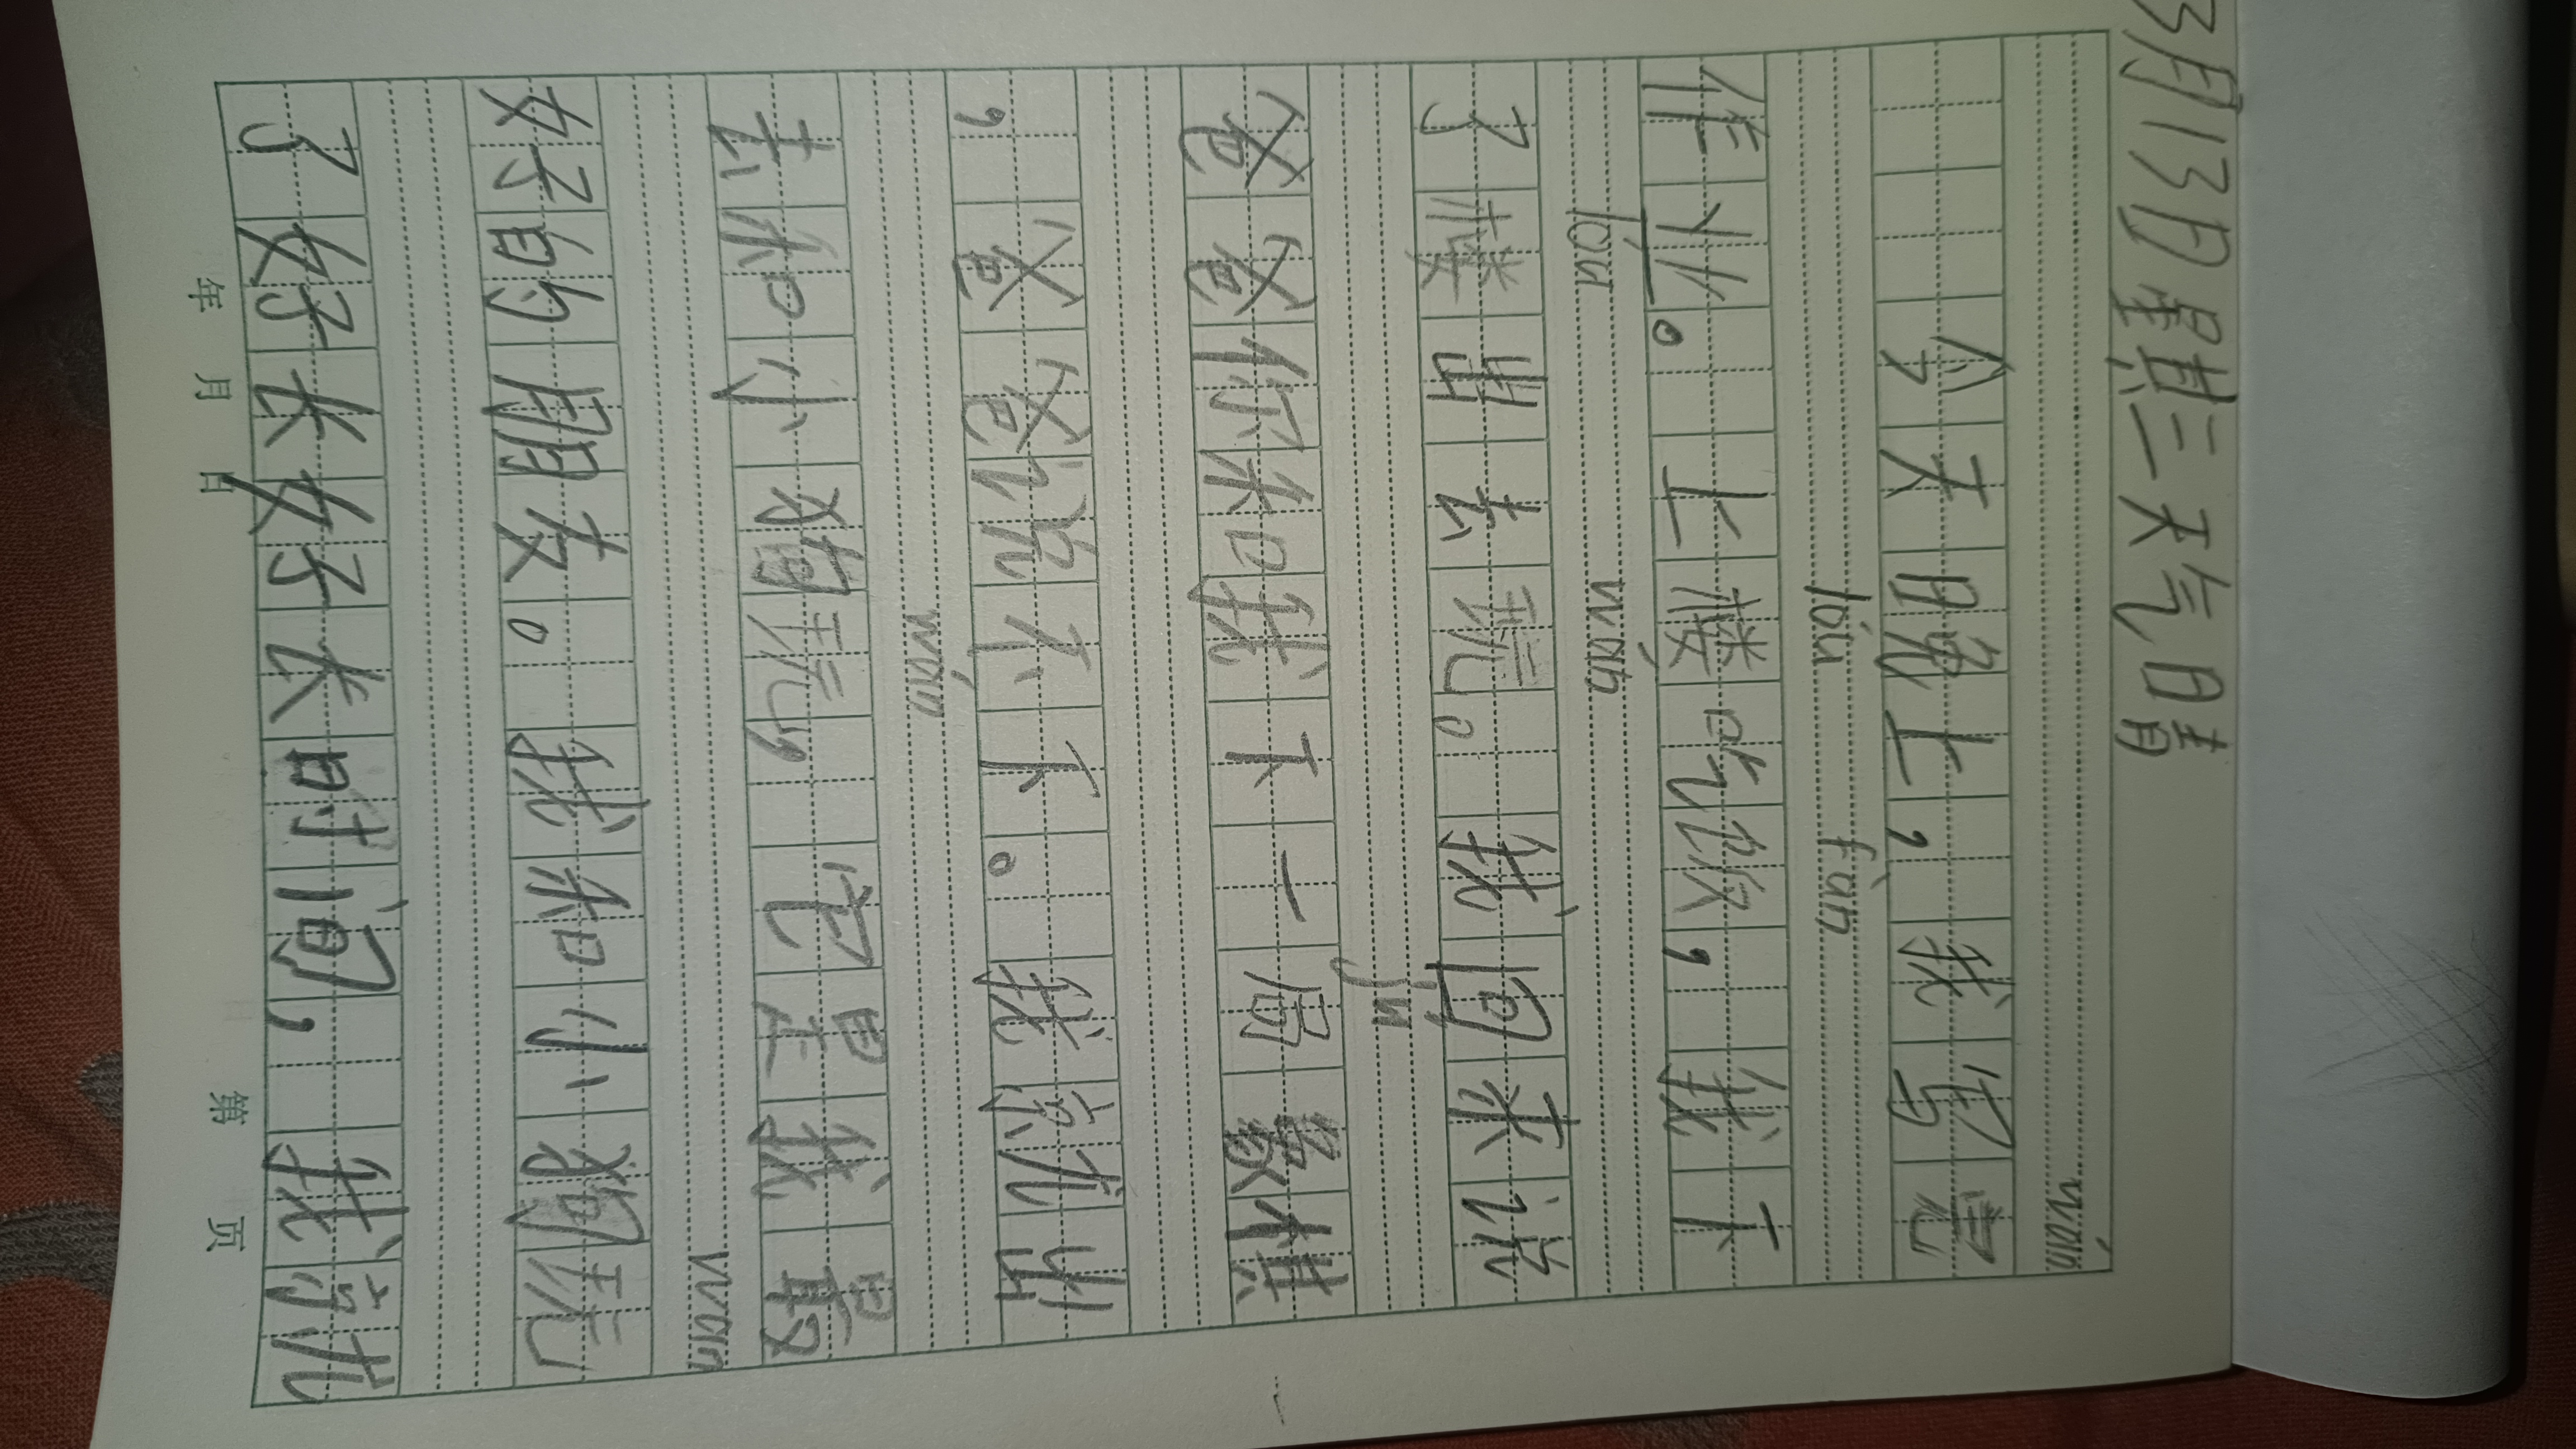 3月13日星期三天气晴
wán
今天晚上,我写完
lóu fàn
作业。上楼吃饭,我下
lóu wán
了楼出去玩。我回来说
jú
爸爸你和我下一局象棋
,爸爸说不下。我就出
wán
去和小狗玩,它是我最
wán
好的朋友。我和小狗玩
了好长好长时间,我就
年 月 日 第 页